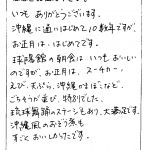 いつも ありがとうございます。
沖縄に通いはじめて10数年ですが、
お正月は、はじめてです。
琉球館の朝食は いつも おいしい
のですが、お正月は、スーチカー、
えび、天ぷら、沖縄かまぼこなど、
ごちそうが並び、特別でした。
琉球舞踊のステージもあり、大満足です。
沖縄風のおぞう煮も
すごく おいしかったです。